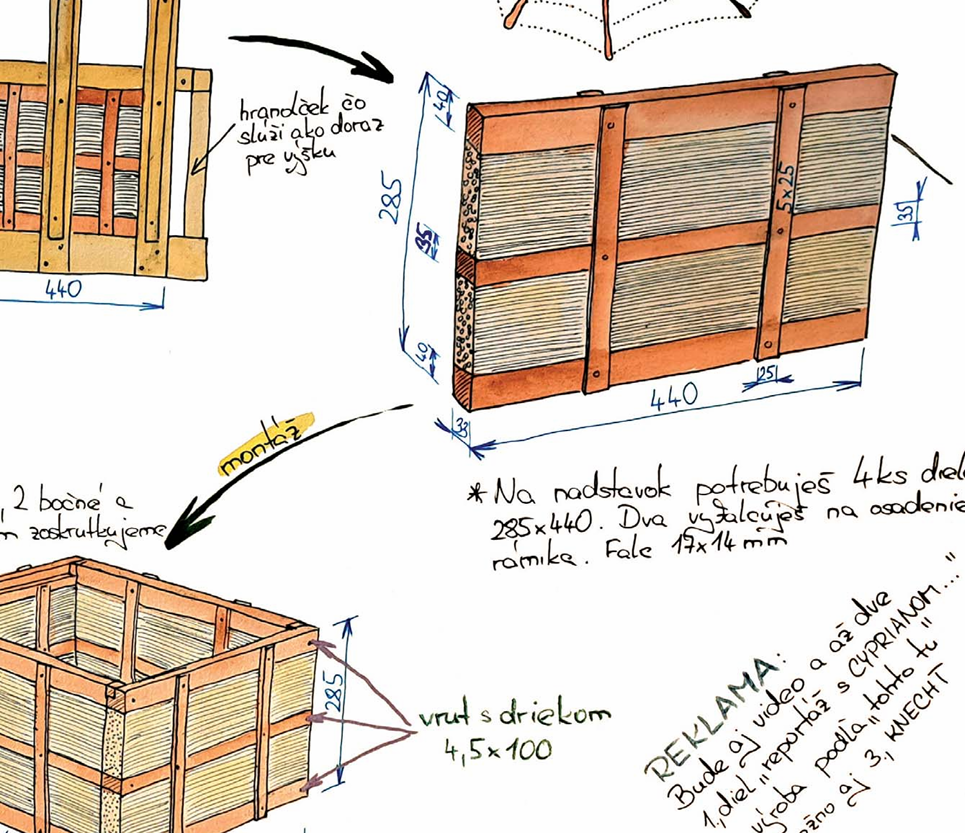 hranolček čo
slúži ako doraz
pre výšku
440
40
285
35
40
33
440
25
5x25
35
montáž
, 2 bočné a
zoskrutkujeme
* Na nadstavok potrebuješ 4ks
285x440. Dva vyfalcuješ na osadenie
rámika. Falc 17x14mm
285
vrut s driekom
4,5x100
REKLAMA:
Bude aj video a až dve
1, diel "reportáž s CYPRIANOM..."
výroba podľa "tohto tu"
aj 3, KNECHT